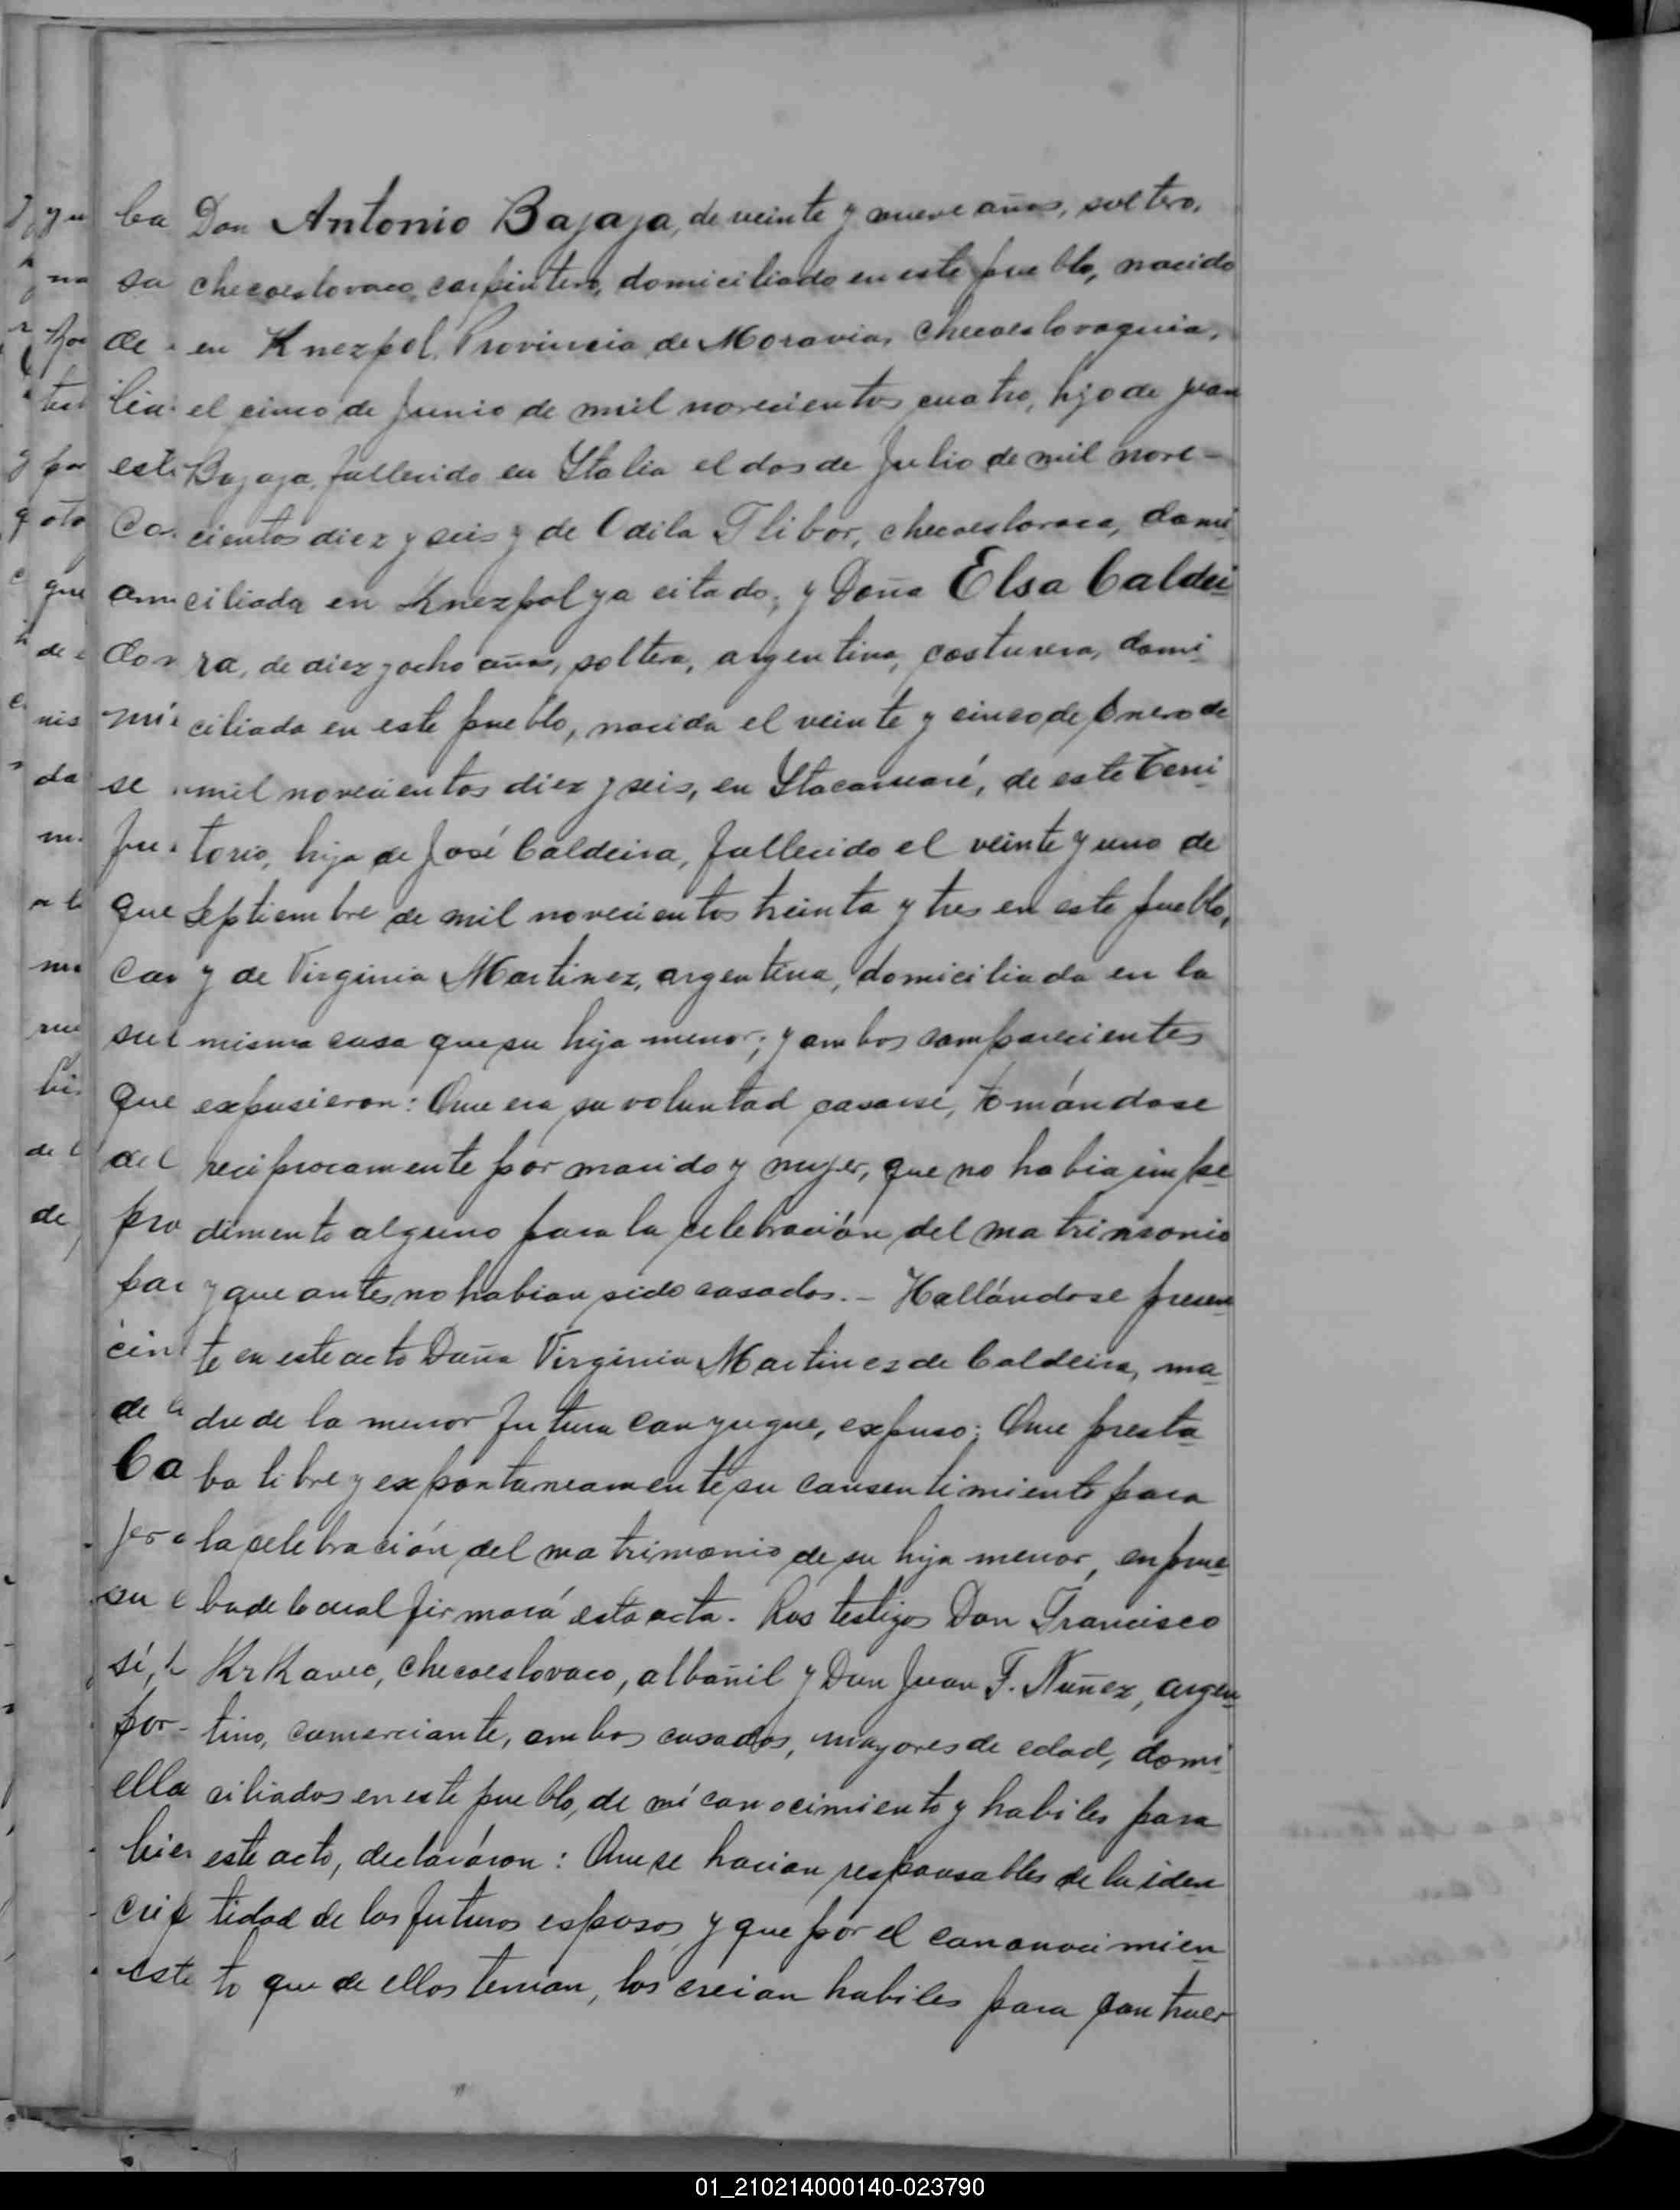 Don Antonio Bajaja, de veinte y nueve años, soltero,
checoeslovaco, carpintero, domiciliado en este pueblo, nacido
en Knezpol, Provincia de Moravia, Checoeslovaquia,
el cinco de Junio de mil novecientos cuatro, hijo de Juan
Bajaja, fallecido en Italia el dos de Julio de mil nove-
cientos diez y seis y de Odila Tlibor, checoeslovaca, domi
ciliada en Knezpol ya citado; y Doña Elsa Caldei
ra, de diez y ocho años, soltera, argentina, costurera, domi
ciliada en este pueblo, nacida el veinte y cinco de Enero de
mil novecientos diez y seis, en Itacaruaré, de este Terri
torio, hija de José Caldeira, fallecido el veinte y uno de
Septiembre de mil novecientos treinta y tres en este pueblo,
y de Virginia Martinez, argentina, domiciliada en la
misma casa que su hija menor; y ambos comparecientes
expusieron: Que era su voluntad casarse, tomándose
reciprocamente por marido y mujer, que no habia impe
dimento alguno para la celebración del matrimonio
y que antes no habian sido casados. - Hallándose presen
te en este acto Doña Virginia Martinez de Caldeira, ma
dre de la menor futura conyugue, expuso: Que presta
ba libre y expontaneamente su consentimiento para
la celebración del matrimonio de su hija menor, en prue
ba de lo cual firmará esta acta. Los testigos Don Francisco
KrKavec, checoeslovaco, albañil y Don Juan F. Nuñez, argen
tino, comerciante, ambos casados, mayores de edad, domi
ciliados en este pueblo, de mi conocimiento y habiles para
este acto, declaráron: Que se hacian responsables de la iden
tidad de los futuros esposos y que por el cononocimien
to que de ellos tenian, los creian habiles para contraer
01_210214000140-023790